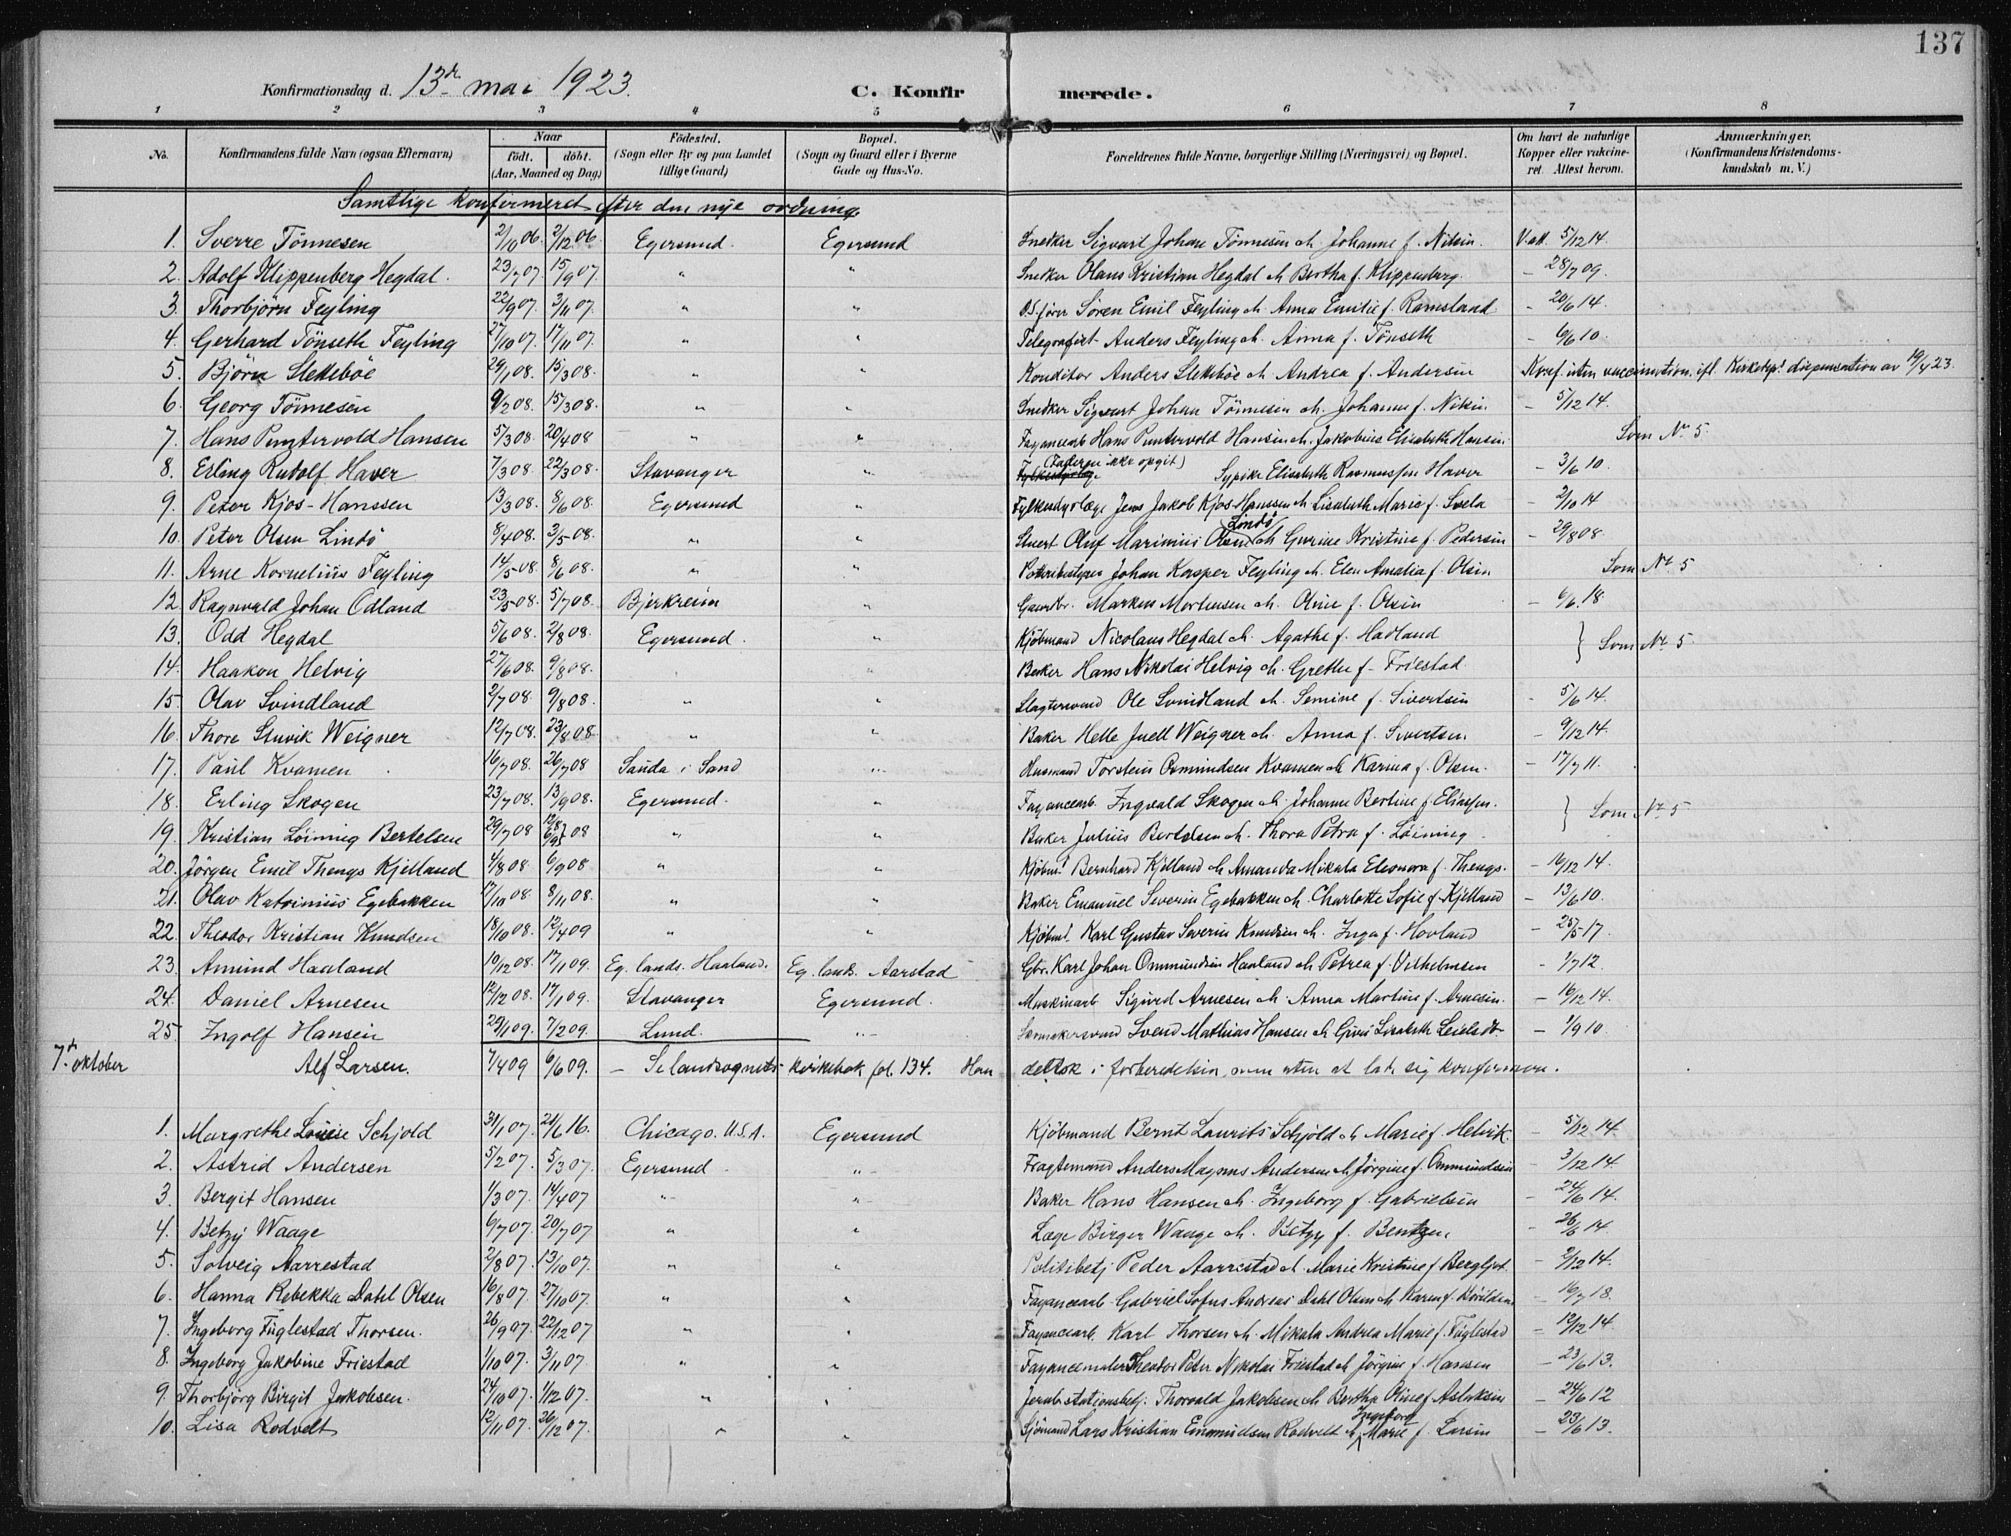 137
Konfirmationsdag d. 13de mai 1923. C. Konfirmerede.
1 2 3 4 5 6 7 8
No. Konfirmandens fulde Navn (ogsaa Efternavn) Naar födt. döbt. (Aar, Maaned og Dag) Födested. (Sogn eller By og paa Landet tillige Gaard) Bopæl. (Sogn og Gaard eller i Byerne Gade og Hus-No. Forældrenes fulde Navne, borgerlige Stilling (Næringsvei) og Bopæl. Om havt de naturlige Kopper eller vakcineret. Attest herom. Anmærkninger. (Konfirmandens Kristendomskundskab m. V.)
Samtlige konfirmeret efter den nye ordning.
1. Sverre Tönnesen 2/10 06. 2/12 06. Egersund. Egersund Snedker Sigvart Johan Tönnesen & Johanne f. Nilsen. V. att. 5/12 14.
2. Adolf Klippenberg Hegdal. 23/7 07. 15/9 07. " " Snedker Olaus Kristian Hegdal & Bertha f. Klippenberg. – 28/7 09.
3. Thorbjörn Feyling 22/9 07. 3/11 07. " " D.S. förer Sören Emil Feyling & Anna Emilie f. Ramsland. – 20/6 14.
4. Gerhard Tönseth Feyling 27/10 07. 17/11 07. " " Telegrafist Anders Feyling & Anna f. Tönseth – 6/6 10.
5. Björn Slekeböe 29/1 08. 15/3 08. " " Konditor Anders Slekeböe & Andrea f. Andersen Konf. uten vaccination ifl. Kirkedep. dispensation av 19/4 23.
6. Georg Tönnesen 9/2 08. 15/3 08. " " Snedker Sigvart Johan Tönnesen & Johanne f. Nilsen. – 5/12 14.
7. Hans Puntervold Hansen 5/3 08. 20/4 08 " " Fayancearb. Hans Puntervold Hansen & Jakobine Elisabeth Hansen. Som No. 5
8. Erling Rudolf Haver 7/3 08. 22/3 08. Stavanger " (Faderen ikke opgit) Sypike Elisabeth Rasmussen Haver – 3/6 10.
9. Peter Kjos-Hanssen 13/3 08. 8/6 08. Egersund " Fylkesdyrlæge Jens Jakob Kjos-Hanssen & Lisabeth Marie f. Svela – 2/10 14
10. Peter Olsen Lindö 8/4 08. 3/5 08. " " Stuert Oluf Marinius Olsen Lindö & Gurine Kristine f. Pedersen – 29/8 08.
11. Arne Kornelius Feyling 14/5 08. 8/6 08. " " Johan Kasper Feyling & Elen Amalia f. Olsen Som No. 5
12. Ragnvald Johan Odland 23/5 08. 5/7 08. Bjerkreim " Gaardbr. Markus Mortensen & Oline f. Olsen – 6/6 18.
13. Odd Hegdal 5/6 08. 2/8 08. Egersund. " Kjöbmand Nicolaus Hegdal & Agathe f. Hadland } Som No. 5
14. Haakon Helvig 27/6 08. 9/8 08. " Baker Hans Nikolai Helvig & Grethe f. Friestad
15. Olav Svindland 2/7 08. 9/8 08. " " Slagtersvend Ole Svindland & Semine f. Sivertsen – 5/6 14.
16. Thore Stuvik Weigner 12/7 08. 23/8 08. " " Baker Helle Juell Weigner & Anna f. Sivertsen. – 9/12 14.
17. Paul Kvamen 16/7 08. 26/7 08 Sauda i Sand " Husmand Torstein Osmundsen Kvamen & Karina f. Olsen. – 17/7 11.
18. Erling Skogen 23/7 08. 13/9 08. Egersund. " Fayancearb. Ingvald Skogen & Johanne Bertine f. Eliassen. } Som No. 5
19. Kristian Löining Bertelsen 29/7 08 12/8 6/9 } 08 " " Baker Julius Bertelsen & Thora Petra f. Löining.
20. Jörgen Emil Thengs Kjelland 4/8 08. 6/9 08. " " Kjöbmd. Bernhard Kjelland & Amanda Mikala Eleonora f. Thengs. – 16/12 14.
21. Olav Katrinius Egebakken 17/10 08. 8/11 08. " " Baker Emanuel Severin Egebakken & Charlotte Sofie f. Kjelland – 13/6 10.
22. Theodor Kristian Knudsen 18/10 08. 12/4 09 " " Kjöbmd. Karl Gustav Severin Knudsen & Inga f. Hovland – 25/5 17
23. Amund Haaland 10/12 08. 17/1 09. Eg. lands. Haaland. Eg. lands. Aarstad Gbr. Karl Johan Ommundsen Haaland & Petrea f. Vilhelmsen – 1/7 12.
24. Daniel Arnesen 12/12 08. 17/1 09. Stavanger Egersund. Maskinarb. Sigurd Arnesen & Anna Martine f. Arnesen. – 16/12 14.
25. Ingolf Hansen 29/1 09. 7/2 09. Lund. " Skomakersvend Svend Mathias Hansen & Guri Lisabeth – 1/9 10.
7de oktober Alf Larsen. 7/4 09 6/6 09. – Se landsognets kirkebok fol. 134. Han deltok i forberedelsen, men uten at lade sig konfirmere.
1. Margrethe Louise Schjold 31/1 07. 21/6 16. Chicago. U.S.A. Egersund Kjöbmand Bernt Laurits Schjöld & Marie f. Helvik. – 5/12 14.
2. Astrid Andersen 5/2 07. 5/3 07. Egersund " Fragtemand Anders Magnus Andersen & Jörgine f. Ommundsen – 3/12 14.
3. Bergit Hansen 1/3 07. 14/4 07 " " Baker Hans Hansen & Ingeborg f. Gabrielsen – 24/6 14.
4. Betzy Waage 6/7 07. 20/7 07 " " Læge Birger Waage & Betzy f. Bentzen. – 26/6 14
5. Solveig Aarrestad 2/8 07. 13/10 07. " " Politibetj. Peder Aarrestad & Marie Kristine f. Bergljot. – 2/12 14.
6. Hanna Rebekka Dahl Olsen 16/8 07. 27/10 07. " " Fayancearb. Gabriel Sofus Andreas Dahl Olsen & Karen f. – 16/7 18.
7. Ingeborg Fuglestad Thorsen. 26/9 07. 22/12 07 " " Fayancearb. Karl Thorsen & Mikala Andrea Marie f. Fuglestad – 12/12 14.
8. Ingeborg Jakobine Friestad 1/10 07. 3/11 07. " " Fayancemaler Theodor Peter Nikolai Friestad & Jörgine f. Hansen – 23/6 13.
9. Thorbjörg Birgit Jakobsen. 24/10 07. 1/12 07. " " Jernb. stationsbetj. Thorvald Jakobsen & Bertha Oline f. Aslaksen – 24/6 12
10. Lisa Rodvelt 12/11 07. 26/12 07. " " Sjömand Lars Kristian Emanuelsen Rodvelt & Ingeborg Marie f. Larsen – 23/6 13.